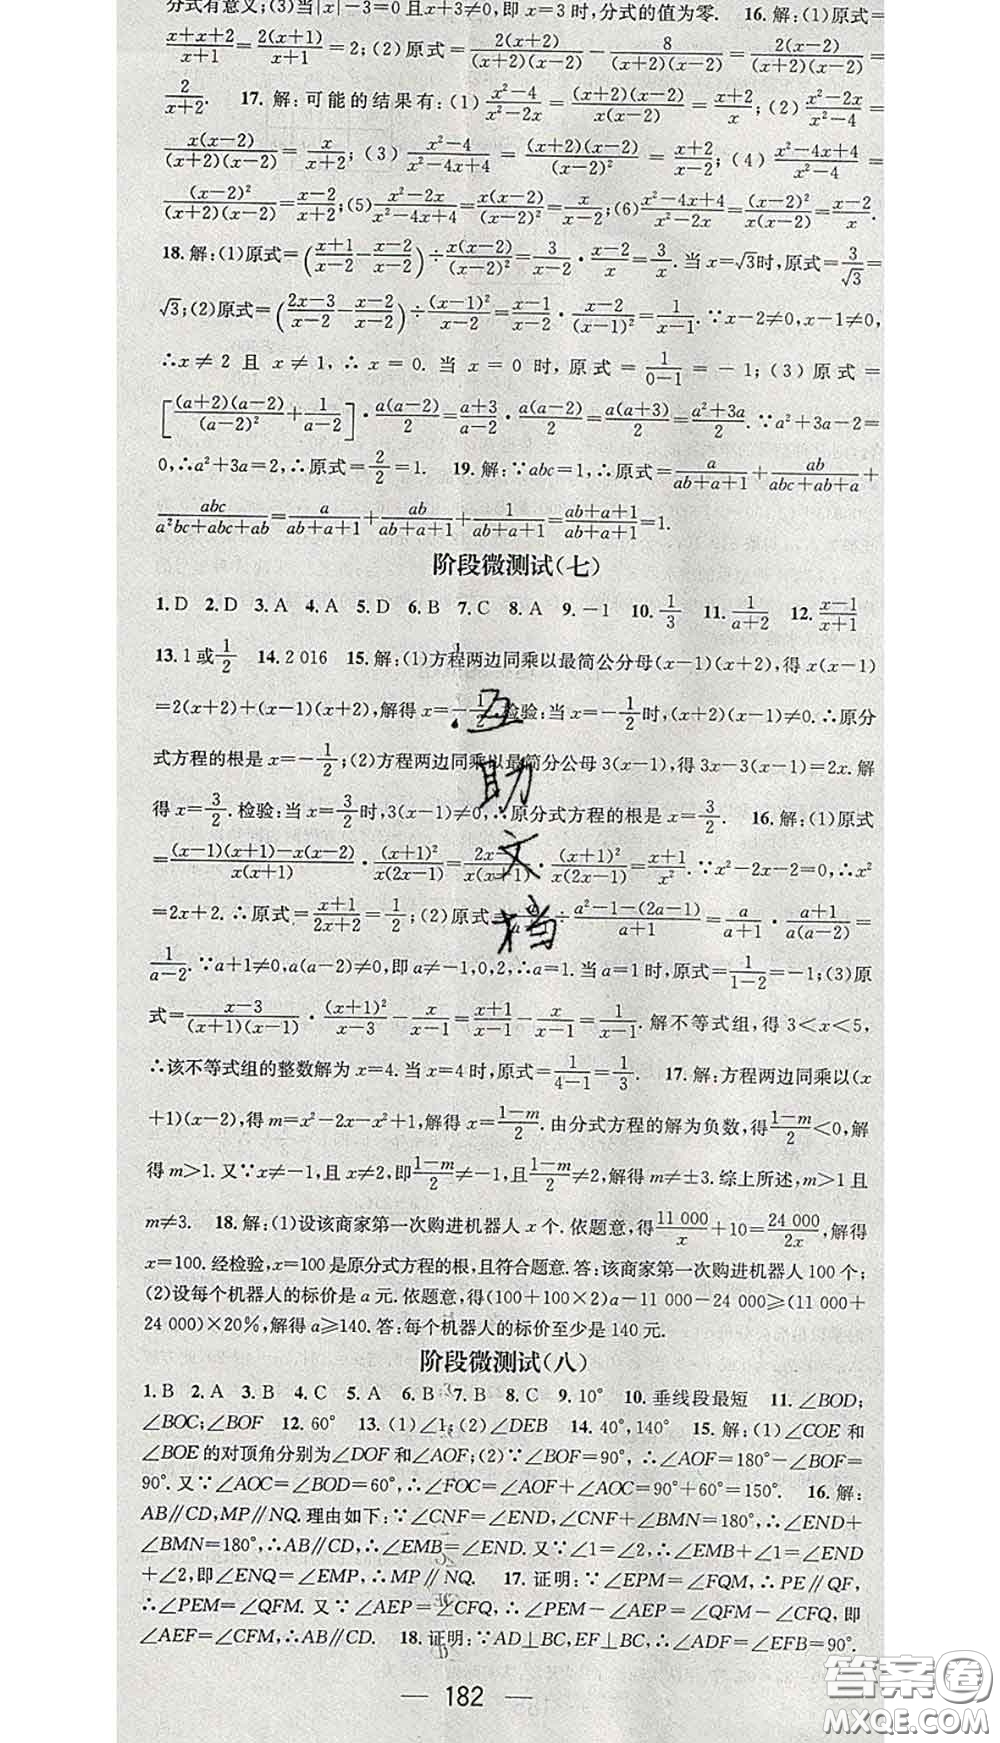 分式有意义;(3)当|x|-3=0且x+3≠0,即x=3时,分式的值为零. 16.解:(1)原式=
(x+x+2)/(x+1)=2(x+1)/(x+1)=2;(2)原式=2(x+2)/((x+2)(x-2))-8/((x+2)(x-2))=2(x-2)/((x+2)(x-2))=
2/(x+2). 17.解:可能的结果有:(1)(x²-4)/(x²-2x)=(x+2)(x-2)/(x(x-2))=(x+2)/x;(2)(x²-2x)/(x²-4)=
x(x-2)/((x+2)(x-2))=x/(x+2);(3)(x²-4)/(x²-4x+4)=(x+2)(x-2)/(x-2)²=(x+2)/(x-2);(4)(x²-4x+4)/(x²-4)=
(x-2)²/((x+2)(x-2))=(x-2)/(x+2);(5)(x²-2x)/(x²-4x+4)=x(x-2)/(x-2)²=x/(x-2);(6)(x²-4x+4)/(x²-2x)=(x-2)²/(x(x-2))=(x-2)/x.
18.解:(1)原式=((x+1)/(x-2)-(x-2)/(x-2))÷x(x-2)/(x-2)²=3/(x-2)·(x-2)/x=3/x.当x=√3时,原式=3/√3=
√3;(2)原式=((2x-3)/(x-2)-(x-2)/(x-2))÷(x-1)²/(x-2)=(x-1)/(x-2)·(x-2)/(x-1)²=1/(x-1).∵x-2≠0,x-1≠0,
∴x≠2且x≠1,∴x=0.当x=0时,原式=1/(0-1)=-1;(3)原式=
[(a+2)(a-2)/(a-2)²+1/(a-2)]·a(a-2)/2=(a+3)/(a-2)·a(a-2)/2=a(a+3)/2=(a²+3a)/2.∵a²+3a-2=
0,∴a²+3a=2,∴原式=2/2=1. 19.解:∵abc=1,∴原式=a/(ab+a+1)+ab/(abc+ab+a)+
abc/(a²bc+abc+ab)=a/(ab+a+1)+ab/(ab+a+1)+1/(ab+a+1)=(ab+a+1)/(ab+a+1)=1.
阶段微测试(七)
1.D 2.D 3.A 4.A 5.D 6.B 7.C 8.A 9.-1 10.1/3 11.1/(a+2) 12.(x-1)/(x+1)
13.1或1/2 14.2 016 15.解:(1)方程两边同乘以最简公分母(x-1)(x+2),得x(x-1)
=2(x+2)+(x-1)(x+2),解得x=-1/2.检验:当x=-1/2时,(x+2)(x-1)≠0.∴原分
式方程的根是x=-1/2;(2)方程两边同乘以最简分公母3(x-1),得3x-3(x-1)=2x.解
得x=3/2.检验:当x=3/2时,3(x-1)≠0,∴原分式方程的根是x=3/2. 16.解:(1)原式
=((x-1)(x+1)-x(x-2))/(x(x+1))·(x+1)²/(x(2x-1))=(2x-1)/(x(x+1))·(x+1)²/(x(2x-1))=(x+1)/x².∵x²-2x-2=0,∴x²
=2x+2.∴原式=(x+1)/(2x+2)=1/2;(2)原式=÷(a²-1-(2a-1))/(a+1)=a/(a+1)·(a+1)/(a(a-2))=
1/(a-2).∵a+1≠0,a(a-2)≠0,即a≠-1,0,2,∴a=1.当a=1时,原式=1/(1-2)=-1;(3)原
式=(x-3)/((x+1)(x-1))·(x+1)²/(x-3)-x/(x-1)=(x+1)/(x-1)-x/(x-1)=1/(x-1).解不等式组,得3<x<5,
∴该不等式组的整数解为x=4.当x=4时,原式=1/(4-1)=1/3. 17.解:方程两边同乘以(x
+1)(x-2),得m=x²-2x-x²+1,解得x=(1-m)/2.由分式方程的解为负数,得(1-m)/2<0,解
得m>1.又∵x≠-1,且x≠2,即(1-m)/2≠-1,且(1-m)/2≠2,解得m≠±3.综上所述,m>1且
m≠3. 18.解:(1)设该商家第一次购进机器人x个.依题意,得11 000/x+10=24 000/2x,解得
x=100.经检验,x=100是原分式方程的根,且符合题意.答:该商家第一次购进机器人100个;
(2)设每个机器人的标价是a元.依题意,得(100+100×2)a-11 000-24 000≥(11 000+
24 000)×20%,解得a≥140.答:每个机器人的标价至少是140元.
阶段微测试(八)
1.B 2.A 3.B 4.C 5.A 6.B 7.B 8.C 9.10° 10.垂线段最短 11.∠BOD;
∠BOC;∠BOF 12.60° 13.(1)∠1;(2)∠DEB 14.40°,140° 15.解:(1)∠COE和
∠BOE的对顶角分别为∠DOF和∠AOF;(2)∵∠BOF=90°,∴∠AOF=180°-∠BOF=
90°.又∵∠AOC=∠BOD=60°,∴∠FOC=∠AOF+∠AOC=90°+60°=150°. 16.解:
AB∥CD,MP∥NQ.理由如下:∵∠CNF=∠END,∠CNF+∠BMN=180°,∴∠END+
∠BMN=180°,∴AB∥CD,∴∠EMB=∠END.又∵∠1=∠2,∴∠EMB+∠1=∠END
+∠2,即∠ENQ=∠EMP,∴MP∥NQ. 17.证明:∵∠EPM=∠FQM,∴PE∥QF,
∴∠PEM=∠QFM.又∵∠AEP=∠CFQ,∴∠PEM-∠AEP=∠QFM-∠CFQ,即
∠AEF=∠CFM,∴AB∥CD. 18.证明:∵AD⊥BC,EF⊥BC,∴∠ADF=∠EFB=90°.
— 182 —
互助文档
答案圈
MXQE.COM